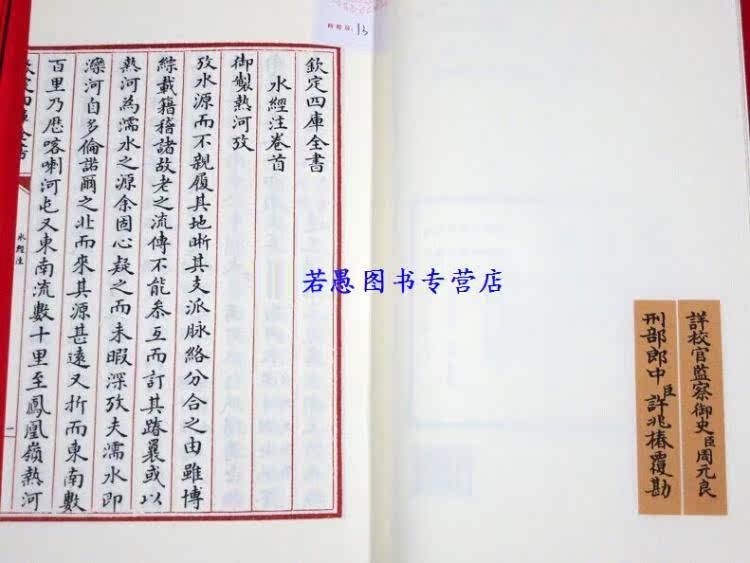 詳校官監察御史臣周元良
刑部郎中臣許兆椿覆勘
欽定四庫全書
水經注卷首
御製熱河攷
攷水源而不親履其地晰其支派脉絡分合之由雖博
綜載籍稽諸故老之流傳不能叅互而訂其踳襄或以
熱河為濡水之源余固心疑之而未暇深攷夫濡水即
灤河自多倫諾爾之北而來其源甚遠又折而東南數
百里乃厯喀喇河屯又東南流數十里至鳳凰嶺熱河
定四庫全書
水經注
一
13
若愚图书专营店